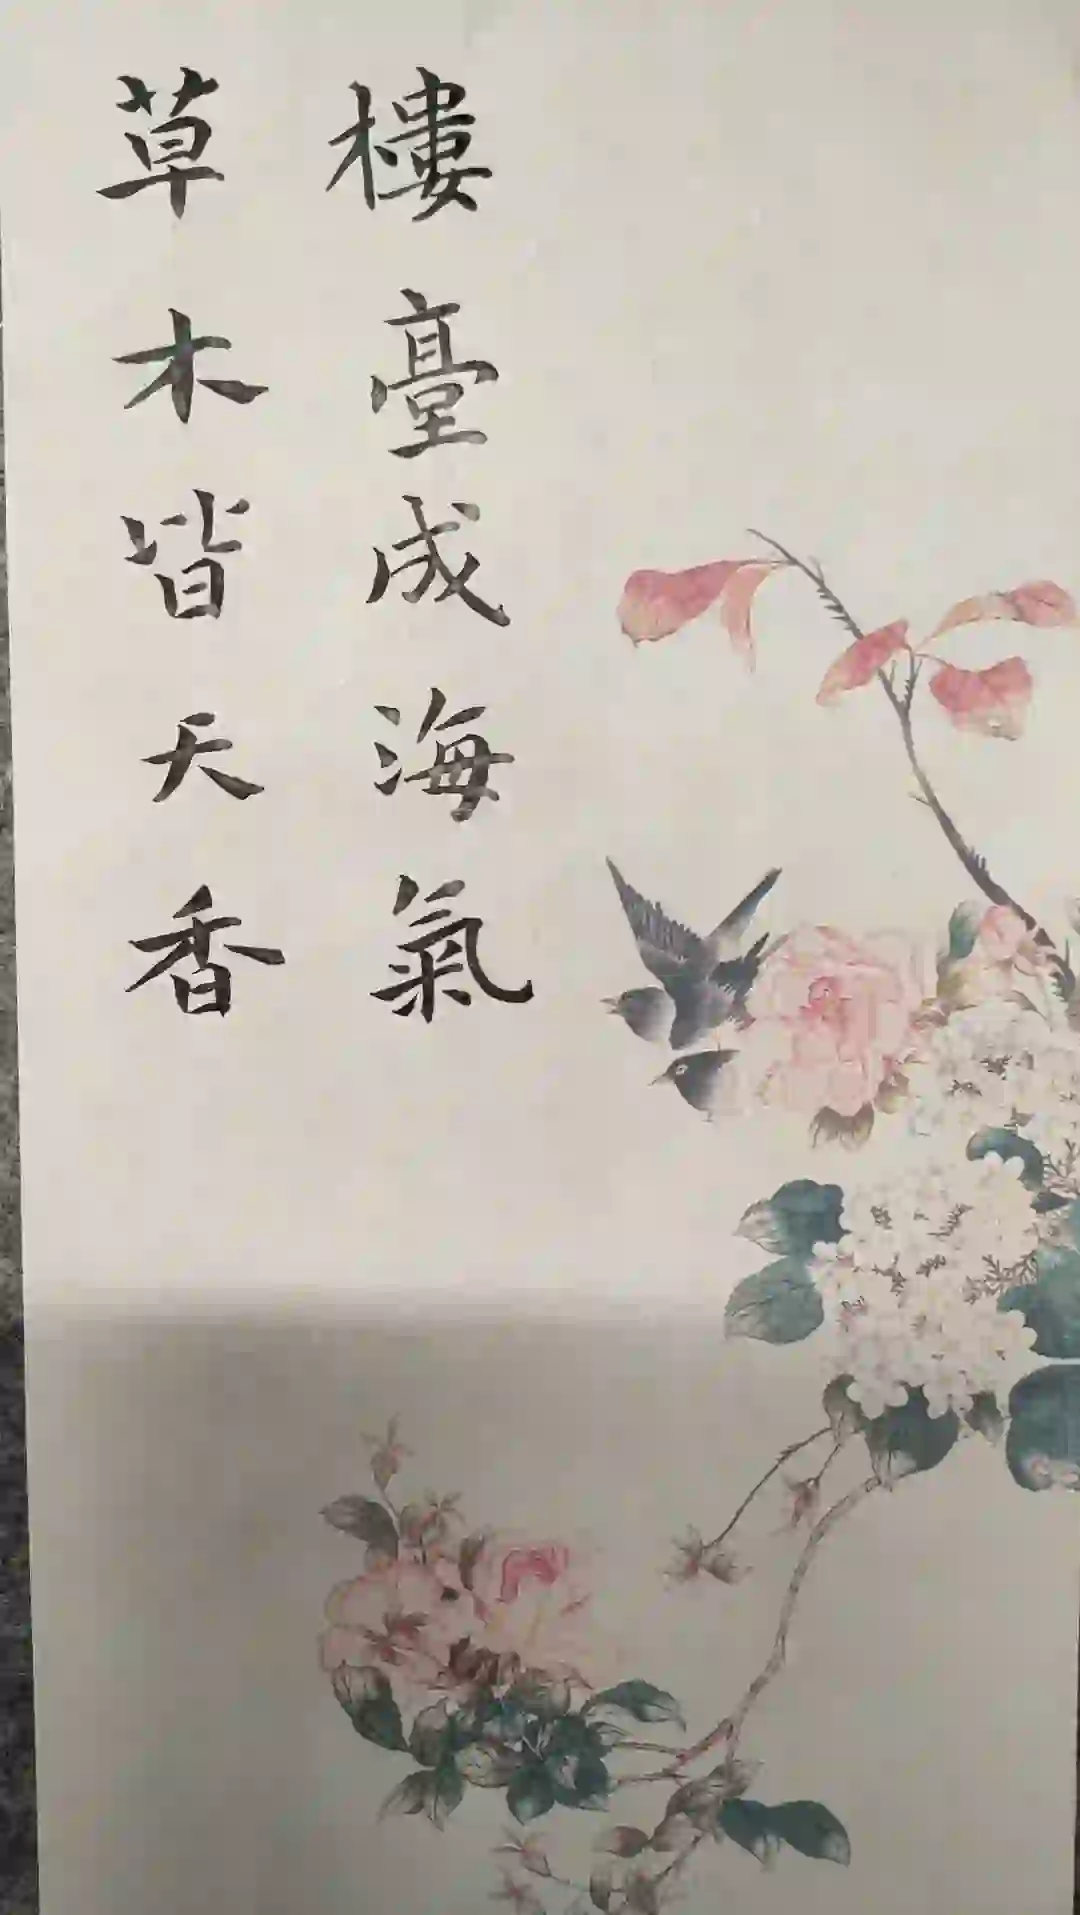 樓臺成海氣
草木皆天香